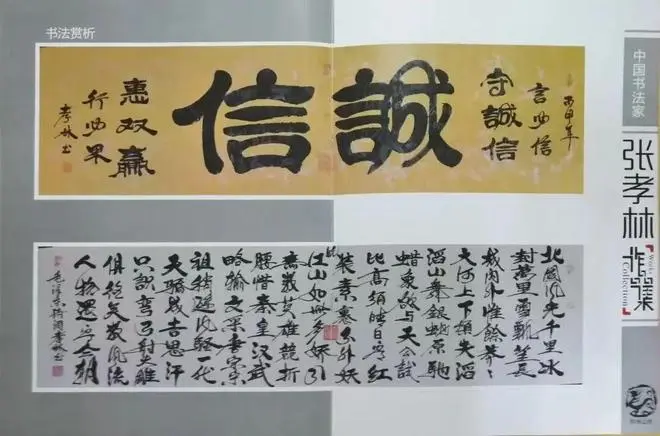 书法赏析
丙申年
言必信
守誠信
誠信
惠双赢
行必果
孝林书
北国风光千里冰
封萬里雪飘望长
城内外惟餘莽々
大河上下顿失滔
滔山舞银蛇原驰
蜡象欲与天公试
比高须晴日看红
装素裹分外妖
江山如此多娇引
無数英雄競折
腰惜秦皇汉武
略输文采唐宗宋
祖稍逊风骚一代
天骄成吉思汗
只识弯弓射大雕
俱往矣数风流
人物还看今朝
毛泽东诗词孝林书
中国书法家
张孝林
作品集
Works
Collection